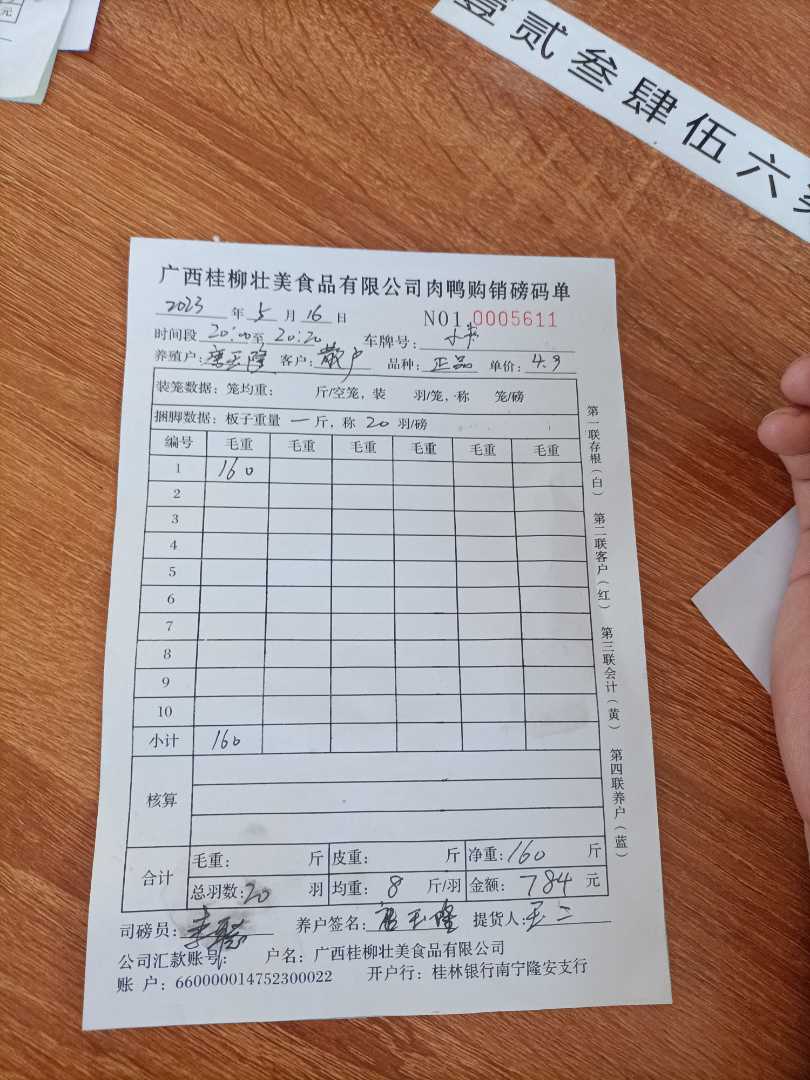 元
壹贰叁肆伍六
广西桂柳壮美食品有限公司肉鸭购销磅码单
2023 年 5 月 16 日 NO1 0005611
时间段 20:00 至 20:20 车牌号:
养殖户: 客户: 散户 品种: 正品 单价: 4.9
装笼数据: 笼均重: 斤/空笼, 装 羽/笼, 称 笼/磅
捆脚数据: 板子重量 一 斤, 称 20 羽/磅
编号 毛重 毛重 毛重 毛重 毛重 毛重
1 160
2
3
4
5
6
7
8
9
10
小计 160
核算
合计 毛重: 斤 皮重: 斤 净重: 160 斤
总羽数: 20 羽 均重: 8 斤/羽 金额: 784 元
司磅员: 养户签名: 提货人: 王二
公司汇款账号: 户名: 广西桂柳壮美食品有限公司
账 户: 660000014752300022 开户行: 桂林银行南宁隆安支行
第一联存根(白) 第二联客户(红) 第三联会计(黄) 第四联养户(蓝)